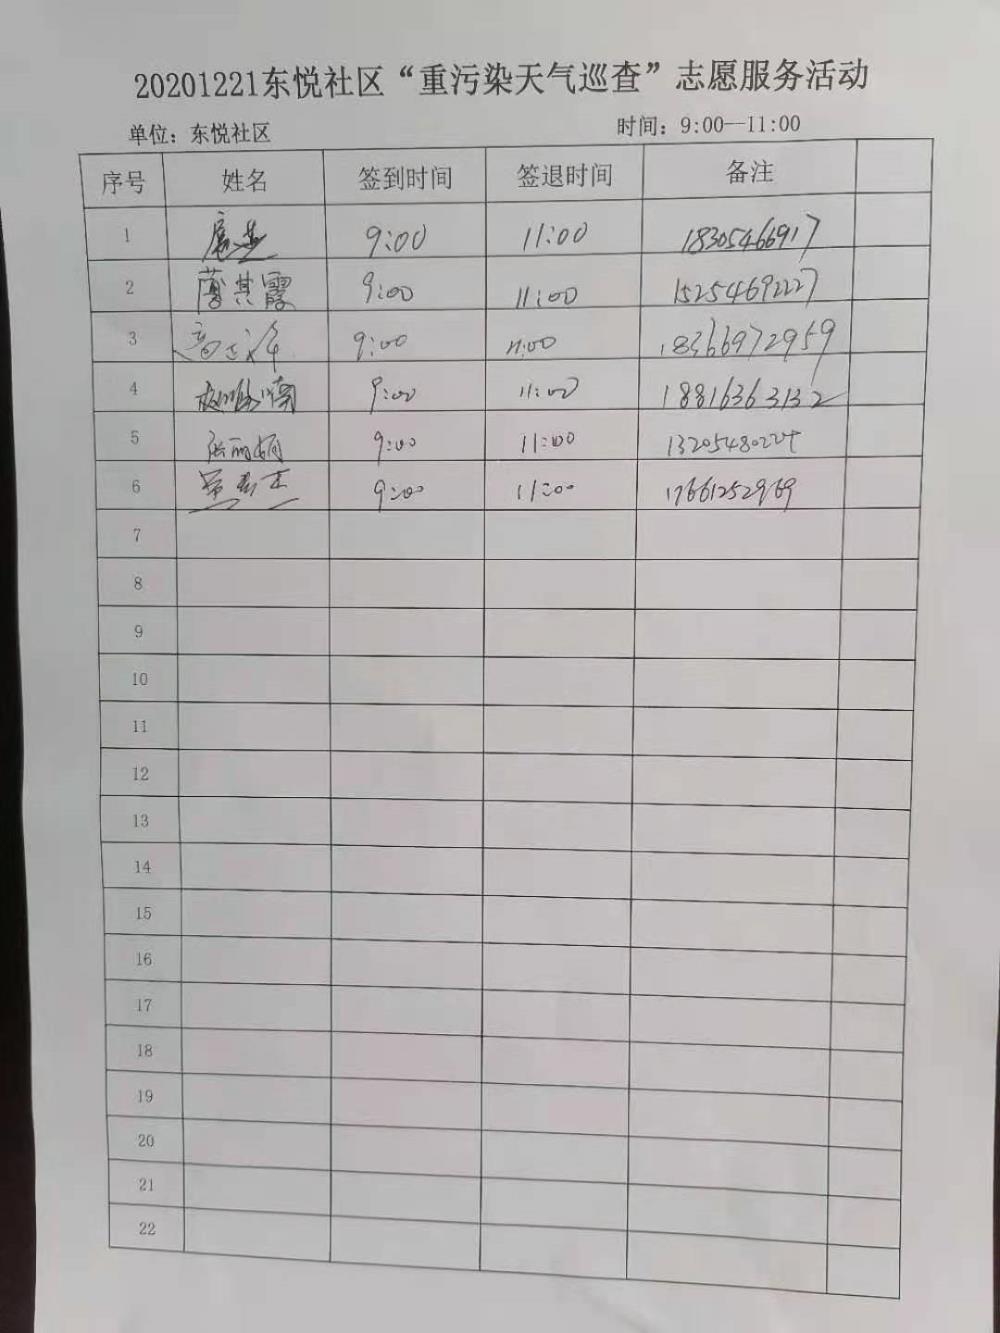 20201221东悦社区“重污染天气巡查”志愿服务活动
单位：东悦社区 时间：9:00--11:00
序号 姓名 签到时间 签退时间 备注
1 9:00 11:00 18305466917
2 薄其霞 9:00 11:00 15254692227
3 9:00 11:00 18366972959
4 9:00 11:00 18816363132
5 张丽娟 9:00 11:00
6 9:00 11:00 17661252969
7
8
9
10
11
12
13
14
15
16
17
18
19
20
21
22